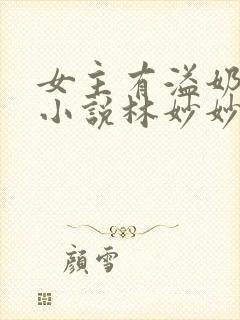 女主有溢奶
小說林妙妙
顏雪